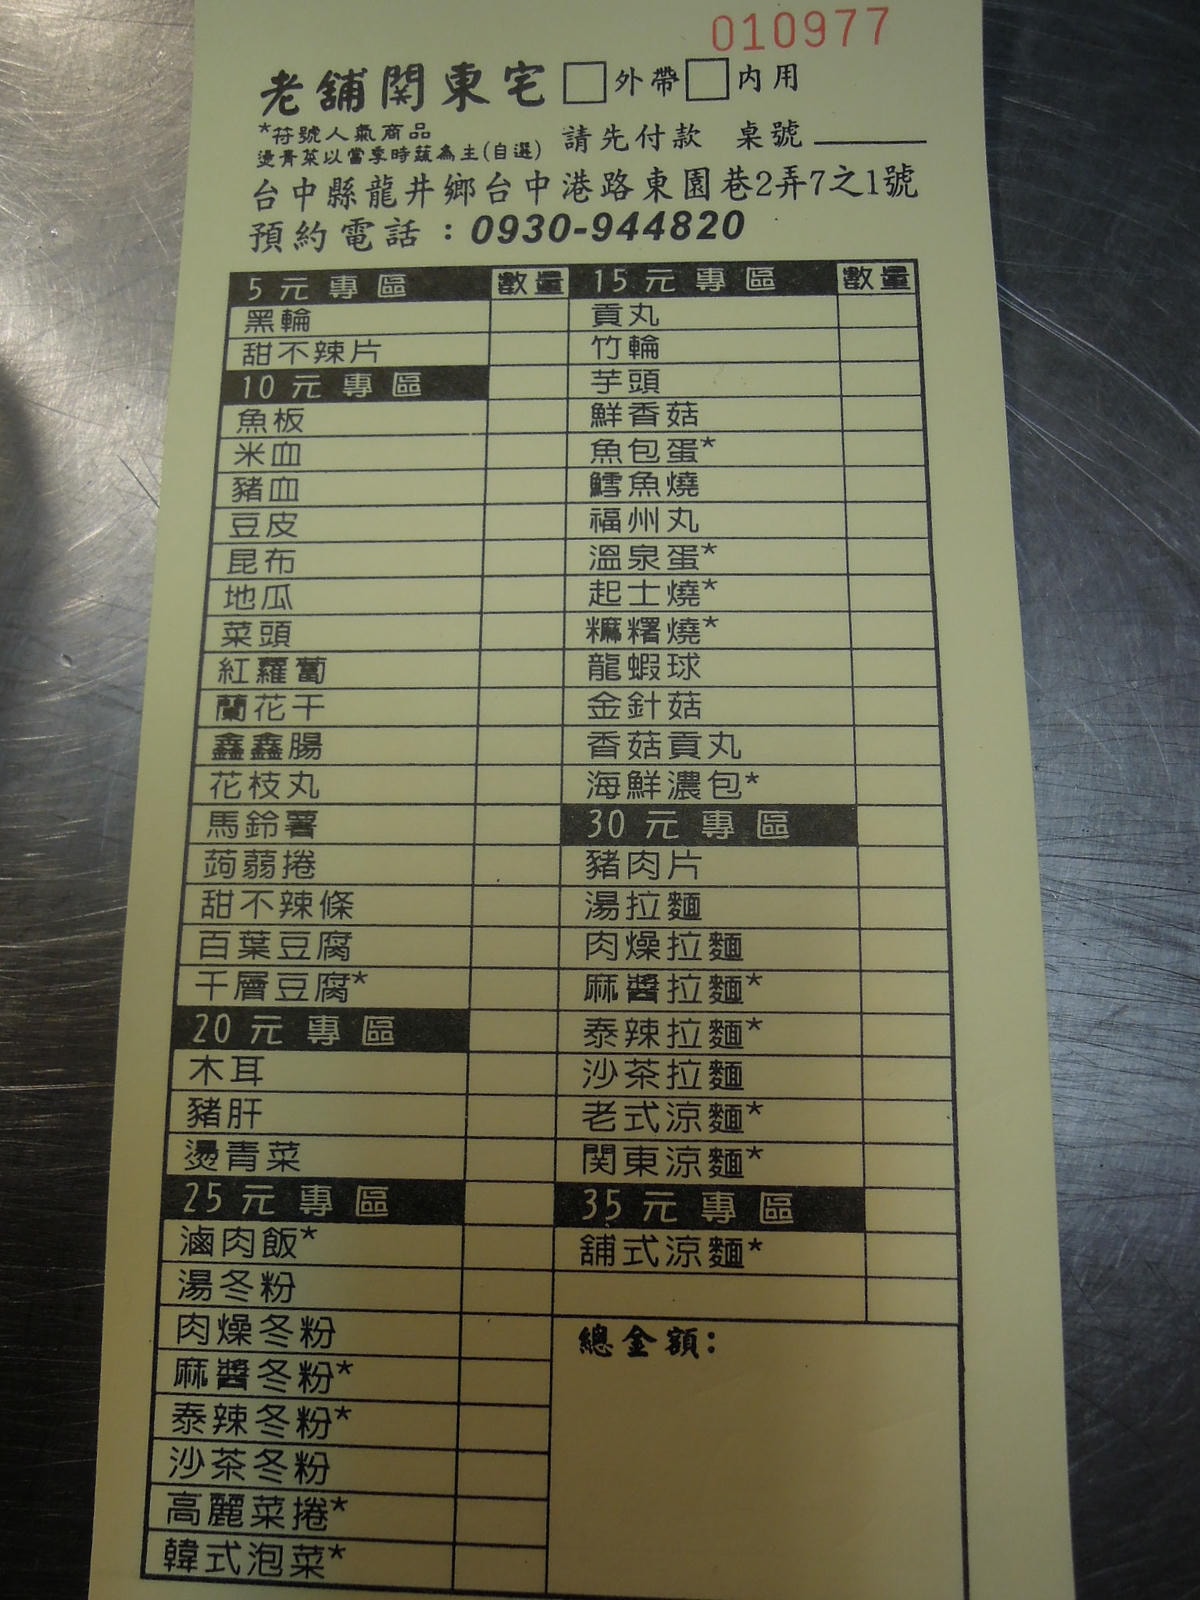 010977
老舖関東宅 □外帶□內用
*符號人氣商品
燙青菜以當季時蔬為主(自選) 請先付款 桌號
台中縣龍井鄉台中港路東園巷2弄7之1號
預約電話：0930-944820
5元專區 數量
黑輪
甜不辣片
10元專區
魚板
米血
豬血
豆皮
昆布
地瓜
菜頭
紅蘿蔔
蘭花干
鑫鑫腸
花枝丸
馬鈴薯
蒟蒻捲
甜不辣條
百葉豆腐
千層豆腐*
20元專區
木耳
豬肝
燙青菜
25元專區
滷肉飯*
湯冬粉
肉燥冬粉
麻醬冬粉*
泰辣冬粉*
沙茶冬粉
高麗菜捲*
韓式泡菜*
15元專區 數量
貢丸
竹輪
芋頭
鮮香菇
魚包蛋*
鱈魚燒
福州丸
溫泉蛋*
起士燒*
糜糬燒*
龍蝦球
金針菇
香菇貢丸
海鮮濃包*
30元專區
豬肉片
湯拉麵
肉燥拉麵
麻醬拉麵*
泰辣拉麵*
沙茶拉麵
老式涼麵*
関東涼麵*
35元專區
舖式涼麵*
總金額：